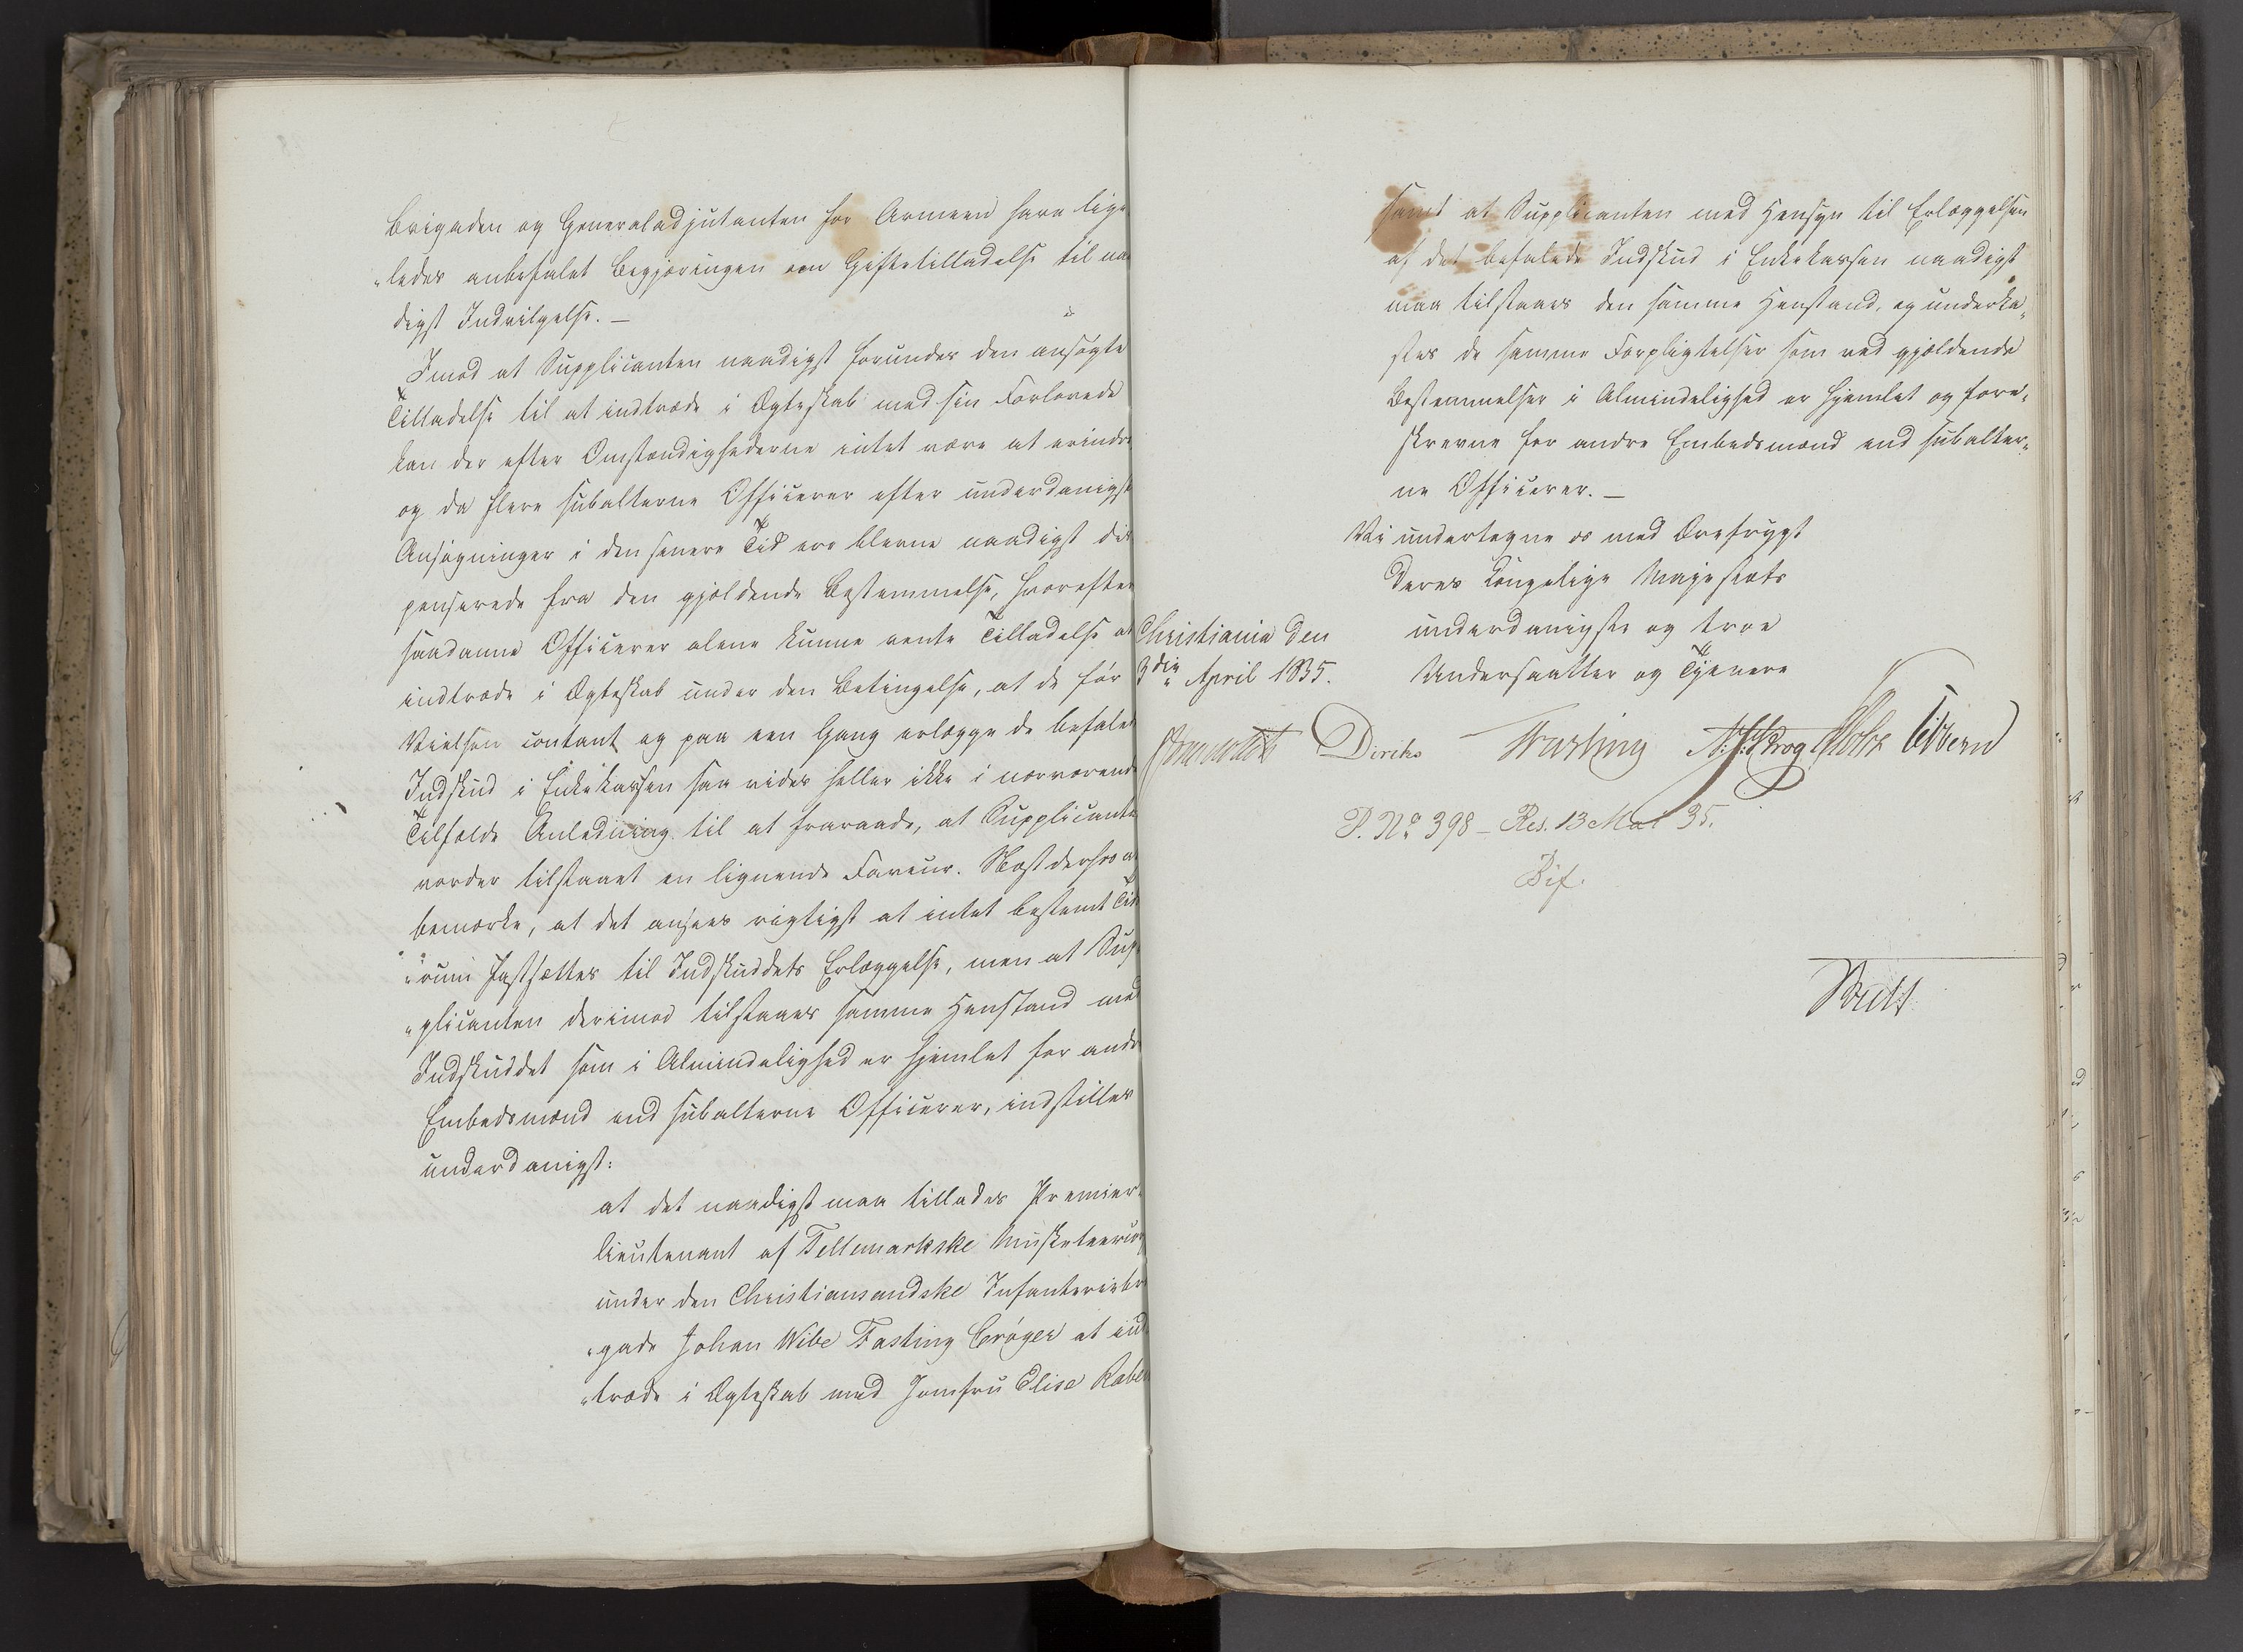 Brigaden og Generaladjutanten for Armeen have lige
„ledes anbefalet Begjæringen om Giftetilladelse til naa
digst Indvilgelse. —
Imod at Supplicanten naadigst forundes den ansøgte
Tilladelse til at indtræde i Ægteskab med sin Forlovede
kan der efter Omstændighederne intet være at erindre
og da flere subalterne Officerer efter underdanigst
Ansøgninger i den senere Tid ere blevne naadigst dis
penserede fra den gjældende Bestemmelse, hvorefter
saadanne Officerer alene kunne vente Tilladelse at
indtræde i Ægteskab under den Betingelse, at de før
Vielsen contant og paa een Gang erlægge de befalede
Indskud i Enkekassen saa vides heller ikke i nærværende
Tilfælde Anledning til at fraraade, at Supplicanten
vorder tilstaaet en lignende Faveur. Næst derhos at
bemærke, at det ansees rigtigst at intet bestemt Tids
„rum fastsættes til Indskuddets Erlæggelse, men at Sup
„plicanten derimod tilstaaes samme Henstand med
Indskuddet som i Almindelighed er hjemlet for andre
Embedsmænd end subalterne Officerer, indstilles
underdanigst:
at det naadigst maa tillades Premier-
lieutenant af Tellemarkske Musketeercorps
under den Christiansandske Infanteriebri
„gade Johan Wibe Fasting Crøger at ind
„træde i Ægteskab med Jomfru Elise Raben
samt at Supplicanten med Hensyn til Erlæggelsen
af det befalede Indskud i Enkekassen naadigst
maa tilstaaes den samme Henstand, og underka„
stes de samme Forpligtelser som ved gjældende
Bestemmelser i Almindelighed er hjemlet og fore„
skrevne for andre Embedsmænd end subalter„
ne Officerer. —
Vi undertegne os med Ærefrygt
Deres Kongelige Majestæts
underdanigste og troe
Undersaatter og Tjenere
Christiania den
9die April 1835.
Diriks Fasting N. J. Krog Holst Vibern
P. No 398 – Res. 13 Mai 35.
Bif.